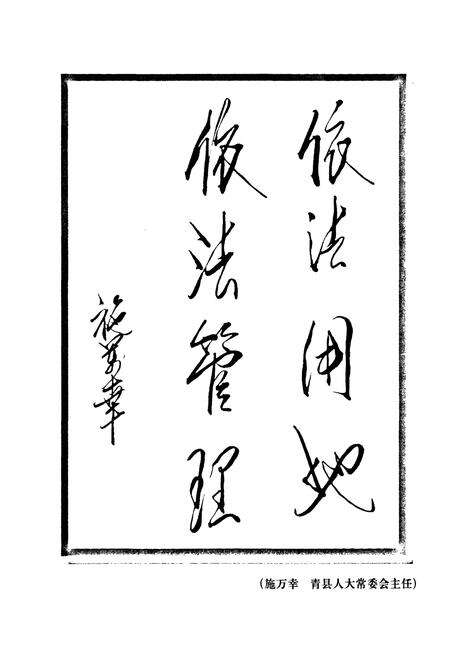 依法用地
依法管理
施萬幸
（施万幸　青县人大常委会主任）